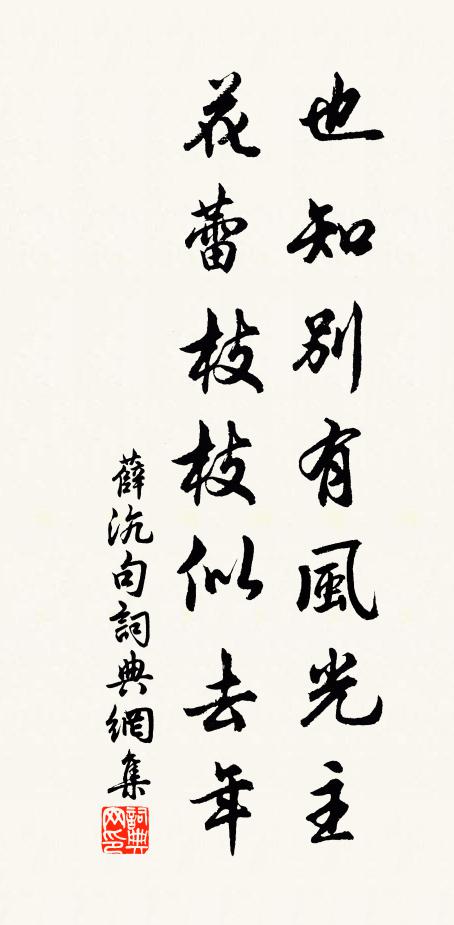 也知別有風光主
花蕾枝枝似去年
薛沆句詞典網集
詞典网印